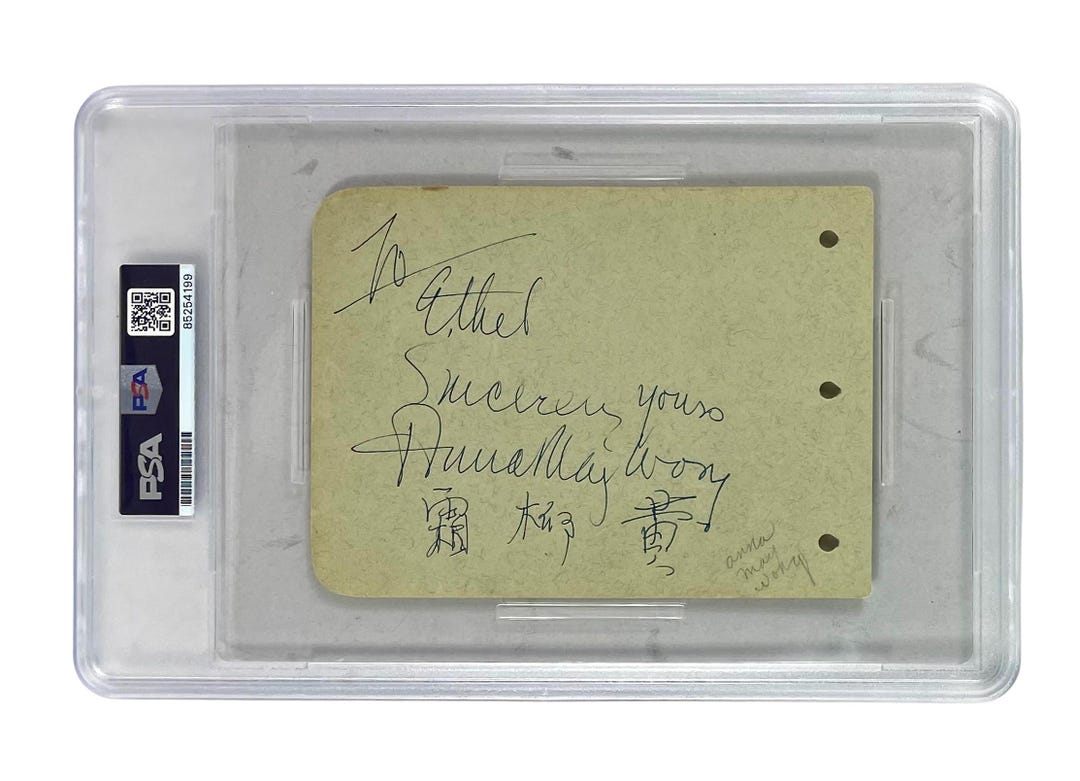 To
Ethel
Sincerely yours
Anna May Wong
霜 柳 黃
anna
may
wong
85254199
PSA
PSA